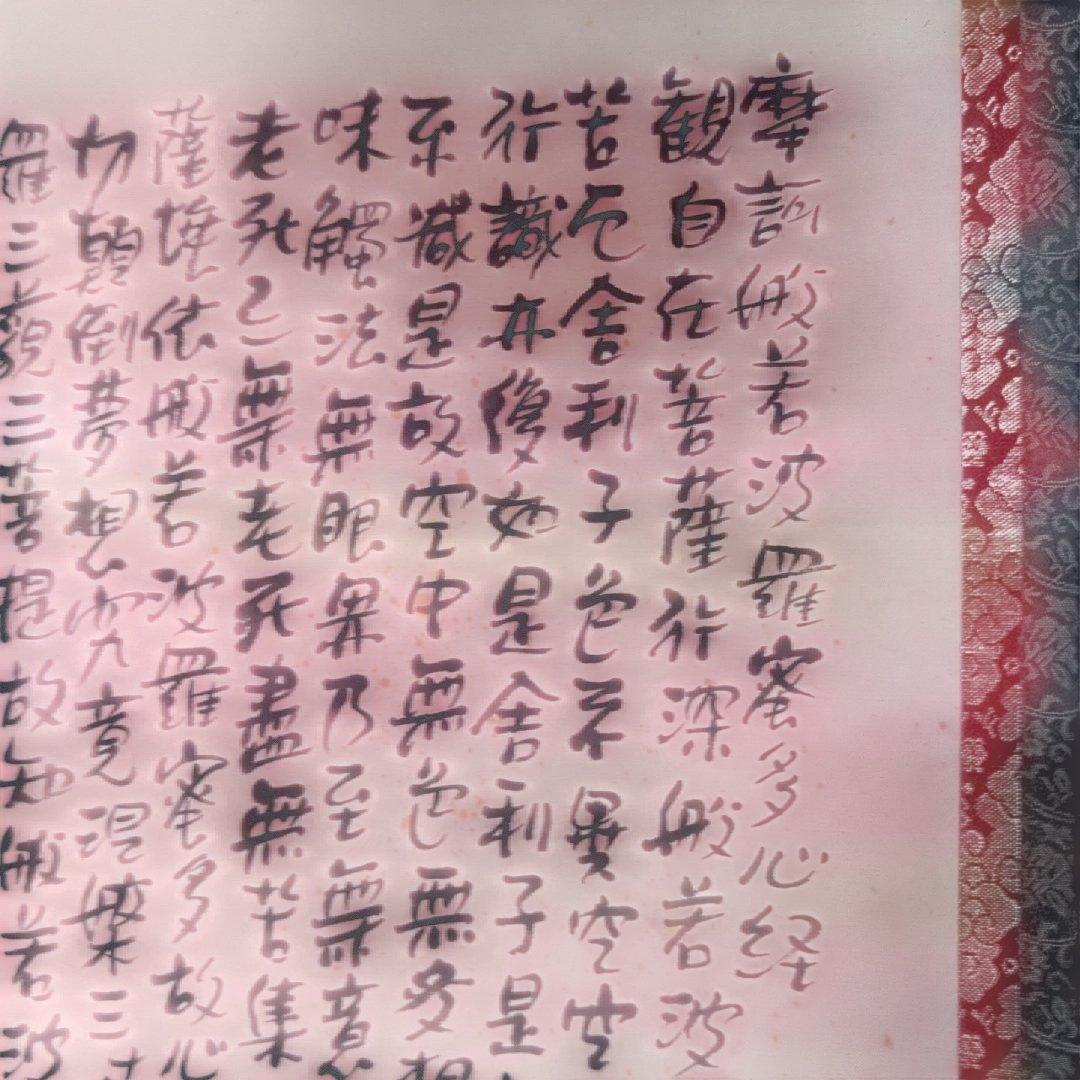 摩訶般若波羅蜜多心経
観自在菩薩行深般若波
苦厄舎利子色不異空空
行識亦復如是舎利子是
不減是故空中無色無受想
味觸法無眼界乃至無意
老死亦無老死盡無苦集
薩埵依般若波羅蜜多故心
切顛倒夢想究竟涅槃三
羅三藐三菩提故知般若波